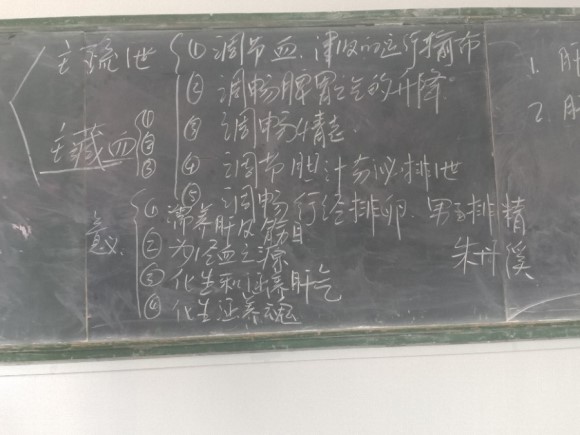 主疏泄
① 调节血、津液的运行输布
② 调畅脾胃之气的升降。
③ 调畅情志.
④ 调节胆汁分泌、排泄
⑤ 调畅行经、排卵. 男子排精
主藏血 ① ② ③
朱丹溪
意义
① 濡养肝及筋目
② 为经血之源
③ 化生和涵养肝气
④ 化生涵养魂
1. 肝
2. 肝